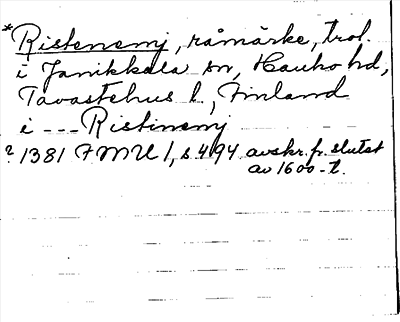 *Ristenemj, råmärke, trol.
i Janikkala sn, Hauho hd,
Tavastehus l., Finland
i --- Ristinemj
? 1381 FMU 1, s. 494 avskr. fr. slutet
av 1600-t.